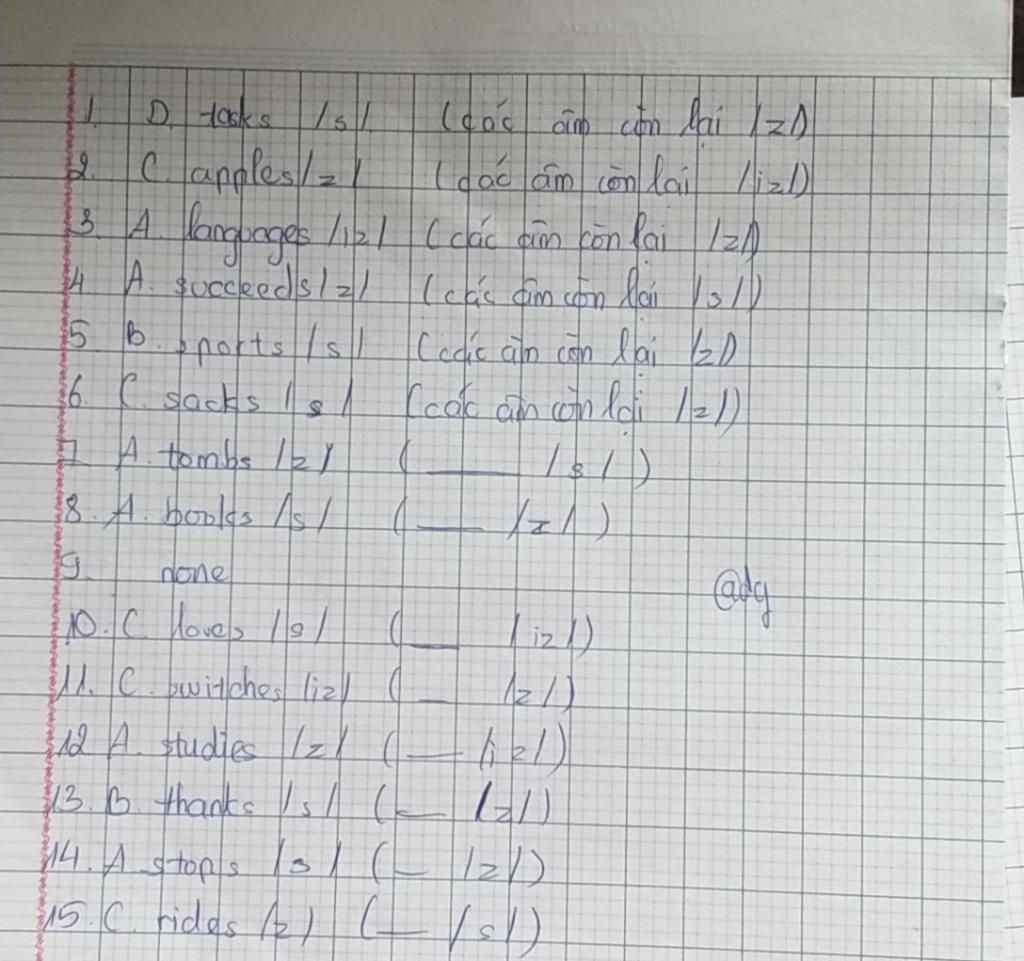 1. D. tasks /s/ (các âm còn lại /z/)
2. C. apples /z/ (các âm còn lại /iz/)
3. A. languages /iz/ (các âm còn lại /z/)
4 A. succeeds /z/ (các âm còn lại /s/)
5 B. sports /s/ (các âm còn lại /z/)
6. C. sacks /s/ (các âm còn lại /z/)
7 A. tombs /z/ ( ___ /s/ )
8. A. books /s/ ( ___ /z/ )
9. none
@dg
10. C. loves /s/ ( __ /iz/)
11. C. switches /iz/ ( _ /z/)
12 A. studies /z/ ( __ /iz/)
13. B. thanks /s/ ( _ /z/)
14. A stops /s/ ( _ /z/)
15. C. rides /z/ ( __ /s/)